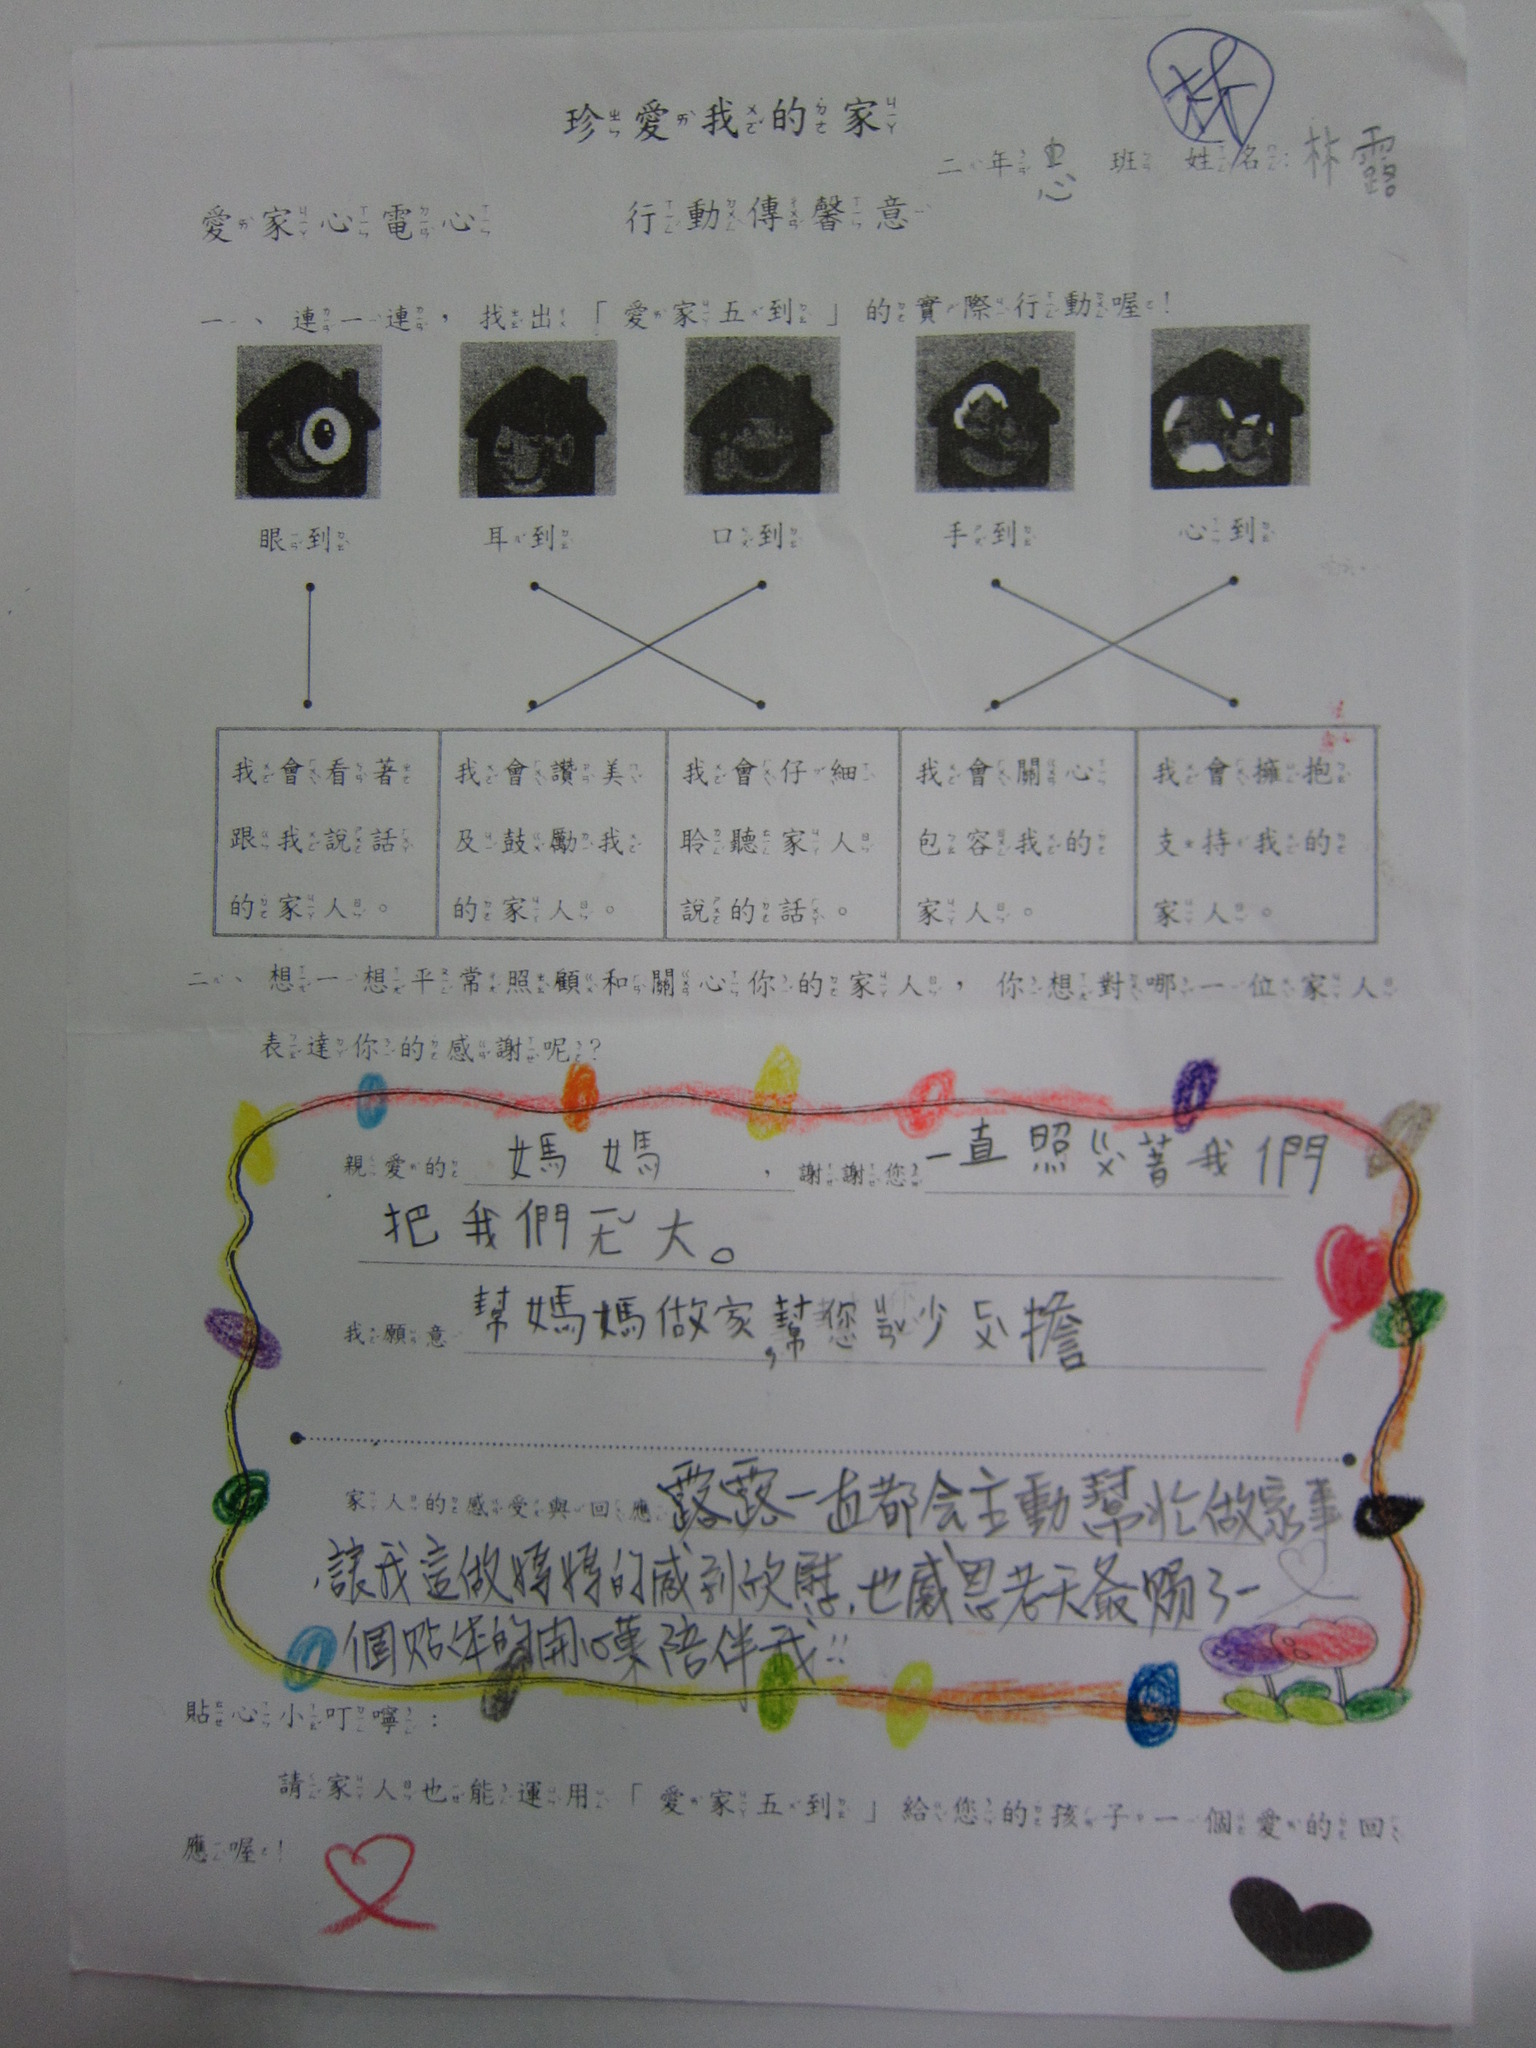 珍愛我的家
二年忠班 姓名：林露
愛家心電心 行動傳馨意
一、連一連，找出「愛家五到」的實際行動喔！
眼到 耳到 口到 手到 心到
我會看著跟我說話的家人。
我會讚美及鼓勵我的家人。
我會仔細聆聽家人說的話。
我會關心包容我的家人。
我會擁抱支持我的家人。
二、想一想平常照顧和關心你的家人，你想對哪一位家人
表達你的感謝呢？
親愛的 媽媽，謝謝您 一直照ㄍㄨˋ著我們
把我們ㄤˇ大。
我願意 幫媽媽做家，幫您ㄐㄧㄢˇ少ㄈㄨˋ擔
家人的感受與回應 露露一直都会主動幫忙做家事
，讓我這做媽媽的感到欣慰，也感恩老天爺賜了一
個貼心的開心果陪伴我!!
貼心小叮嚀：
請家人也能運用「愛家五到」給您的孩子一個愛的回
應喔！